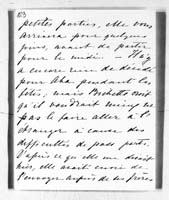 petites parties, elle vous
arrivera pour quelques
jours, avant de partir
pour le midi. Il n'y
a encore rien de décidé
pour pendant les
fêtes; mais croit
qu'il vaudrait mieux ne
pas le faire aller à l'é-
tranger à cause des
difficultés de
D'après ce qu'elle me disait
hier, elle aurait envie de
l'envoyer auprès de ses frères